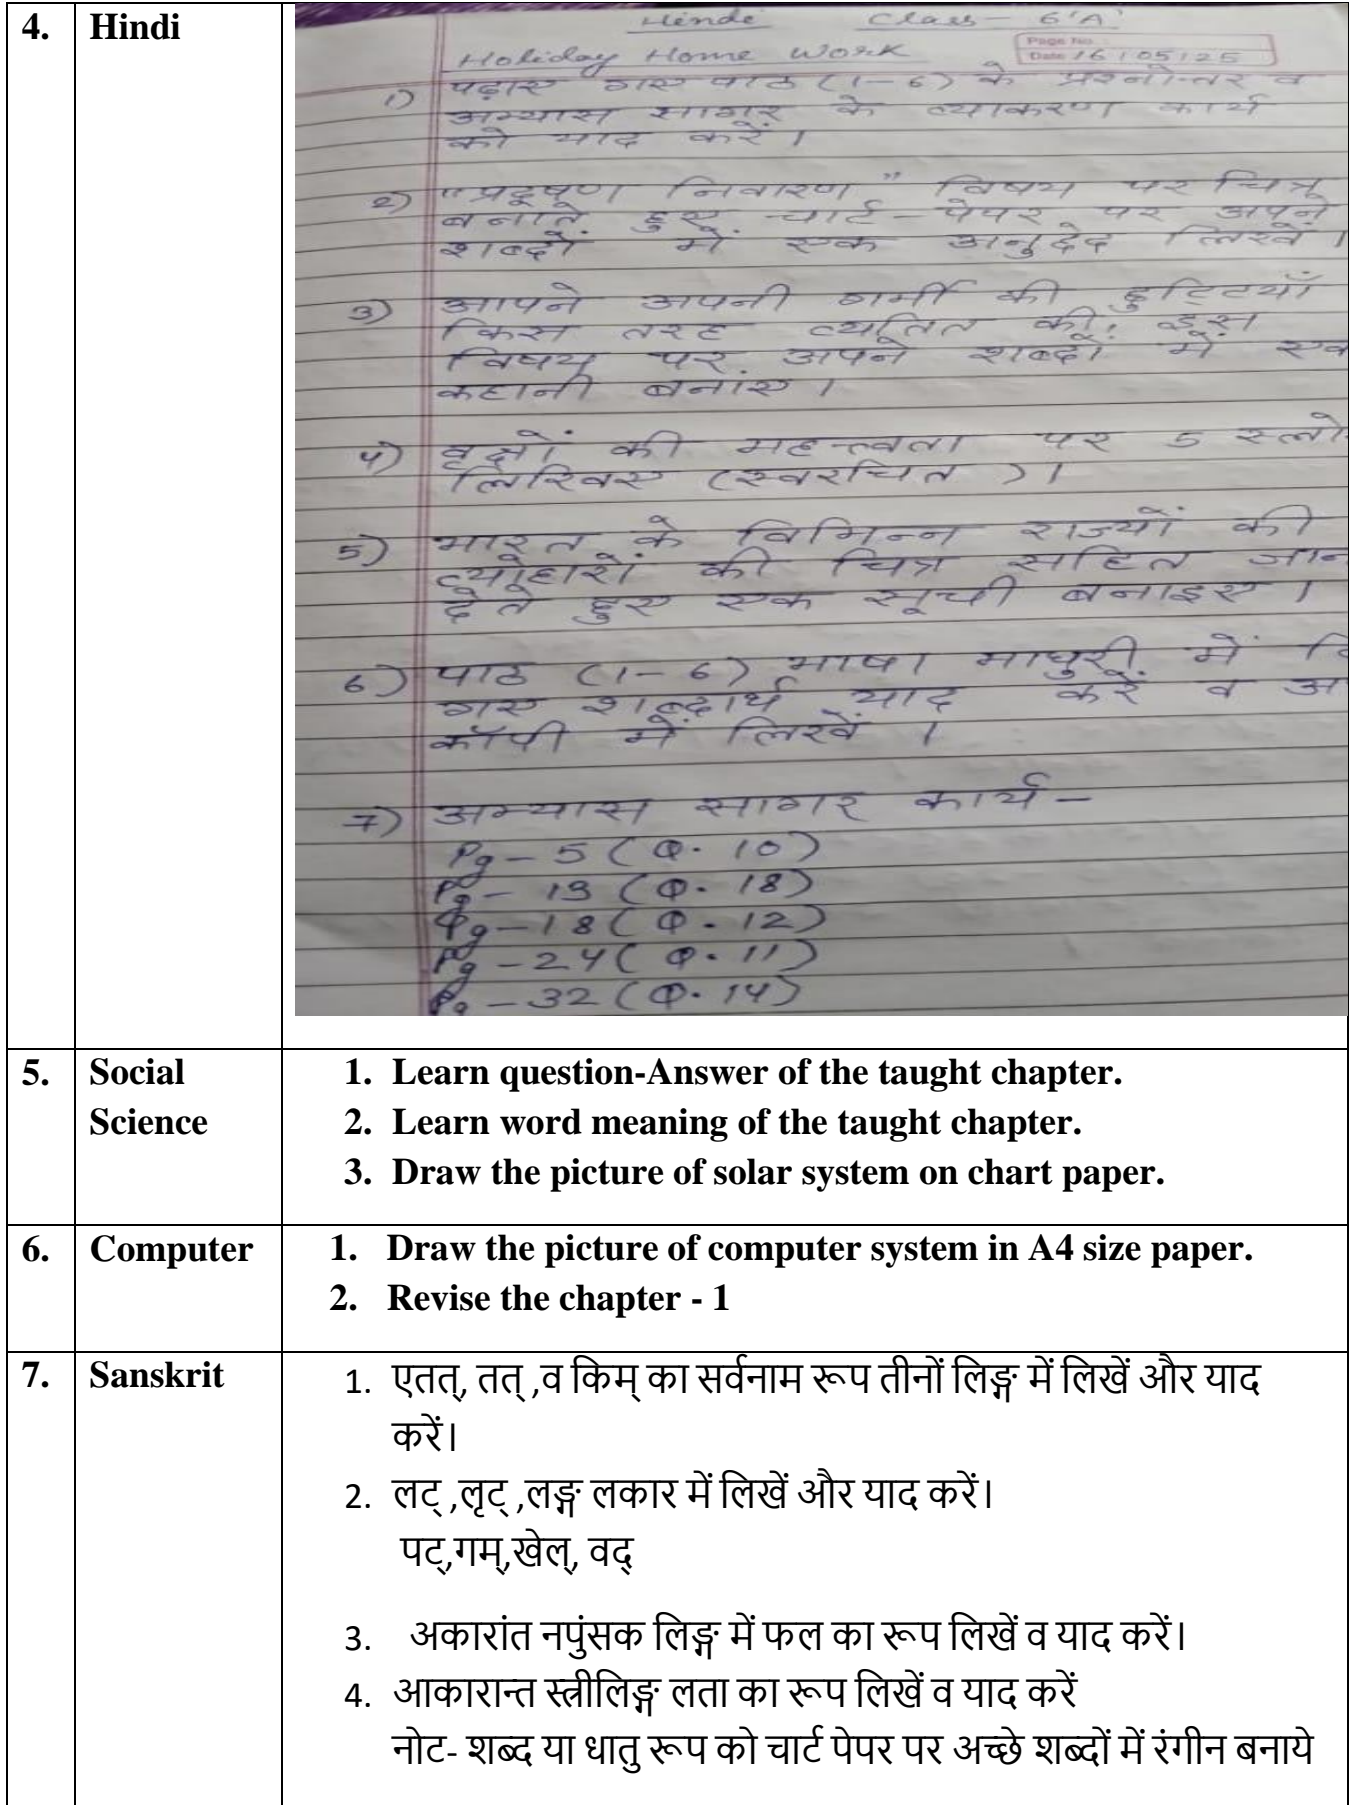 4. Hindi
Hindi Class - 6'A'
Page No.
Holiday Home Work
Date 16/05/25
1) पढ़ाए गए पाठ (1-6) के प्रश्नोत्तर व
अभ्यास सागर के व्याकरण कार्य
को याद करें।
2) "प्रदूषण निवारण" विषय पर चित्र
बनाते हुए चार्ट-पेपर पर अपने
शब्दों में एक अनुछेद लिखें।
3) आपने अपनी गर्मी की छुट्टियाँ
किस तरह व्यतित की, इस
विषय पर अपने शब्दों में
कहानी बनांए।
4) वृक्षों की महत्त्वता पर 5
लिखिए (स्वरचित)।
5) भारत के विभिन्न राज्यों की
त्योहारों की चित्र सहित
देते हुए एक सूची बनाइए।
6) पाठ (1-6) भाषा माधुरी में
गए शब्दार्थ याद करें व
कॉपी में लिखें।
7) अभ्यास सागर कार्य-
Pg-5 (Q. 10)
Pg-13 (Q. 18)
Pg-18 (Q. 12)
Pg-24 (Q. 11)
Pg-32 (Q. 14)
5. Social Science
1. Learn question-Answer of the taught chapter.
2. Learn word meaning of the taught chapter.
3. Draw the picture of solar system on chart paper.
6. Computer
1. Draw the picture of computer system in A4 size paper.
2. Revise the chapter - 1
7. Sanskrit
1. एतत्, तत् ,व किम् का सर्वनाम रूप तीनों लिङ्ग में लिखें और याद
करें।
2. लट् ,लृट् ,लङ्ग लकार में लिखें और याद करें।
पट्,गम्,खेल्, वद्
3. अकारांत नपुंसक लिङ्ग में फल का रूप लिखें व याद करें।
4. आकारान्त स्त्रीलिङ्ग लता का रूप लिखें व याद करें
नोट- शब्द या धातु रूप को चार्ट पेपर पर अच्छे शब्दों में रंगीन बनाये